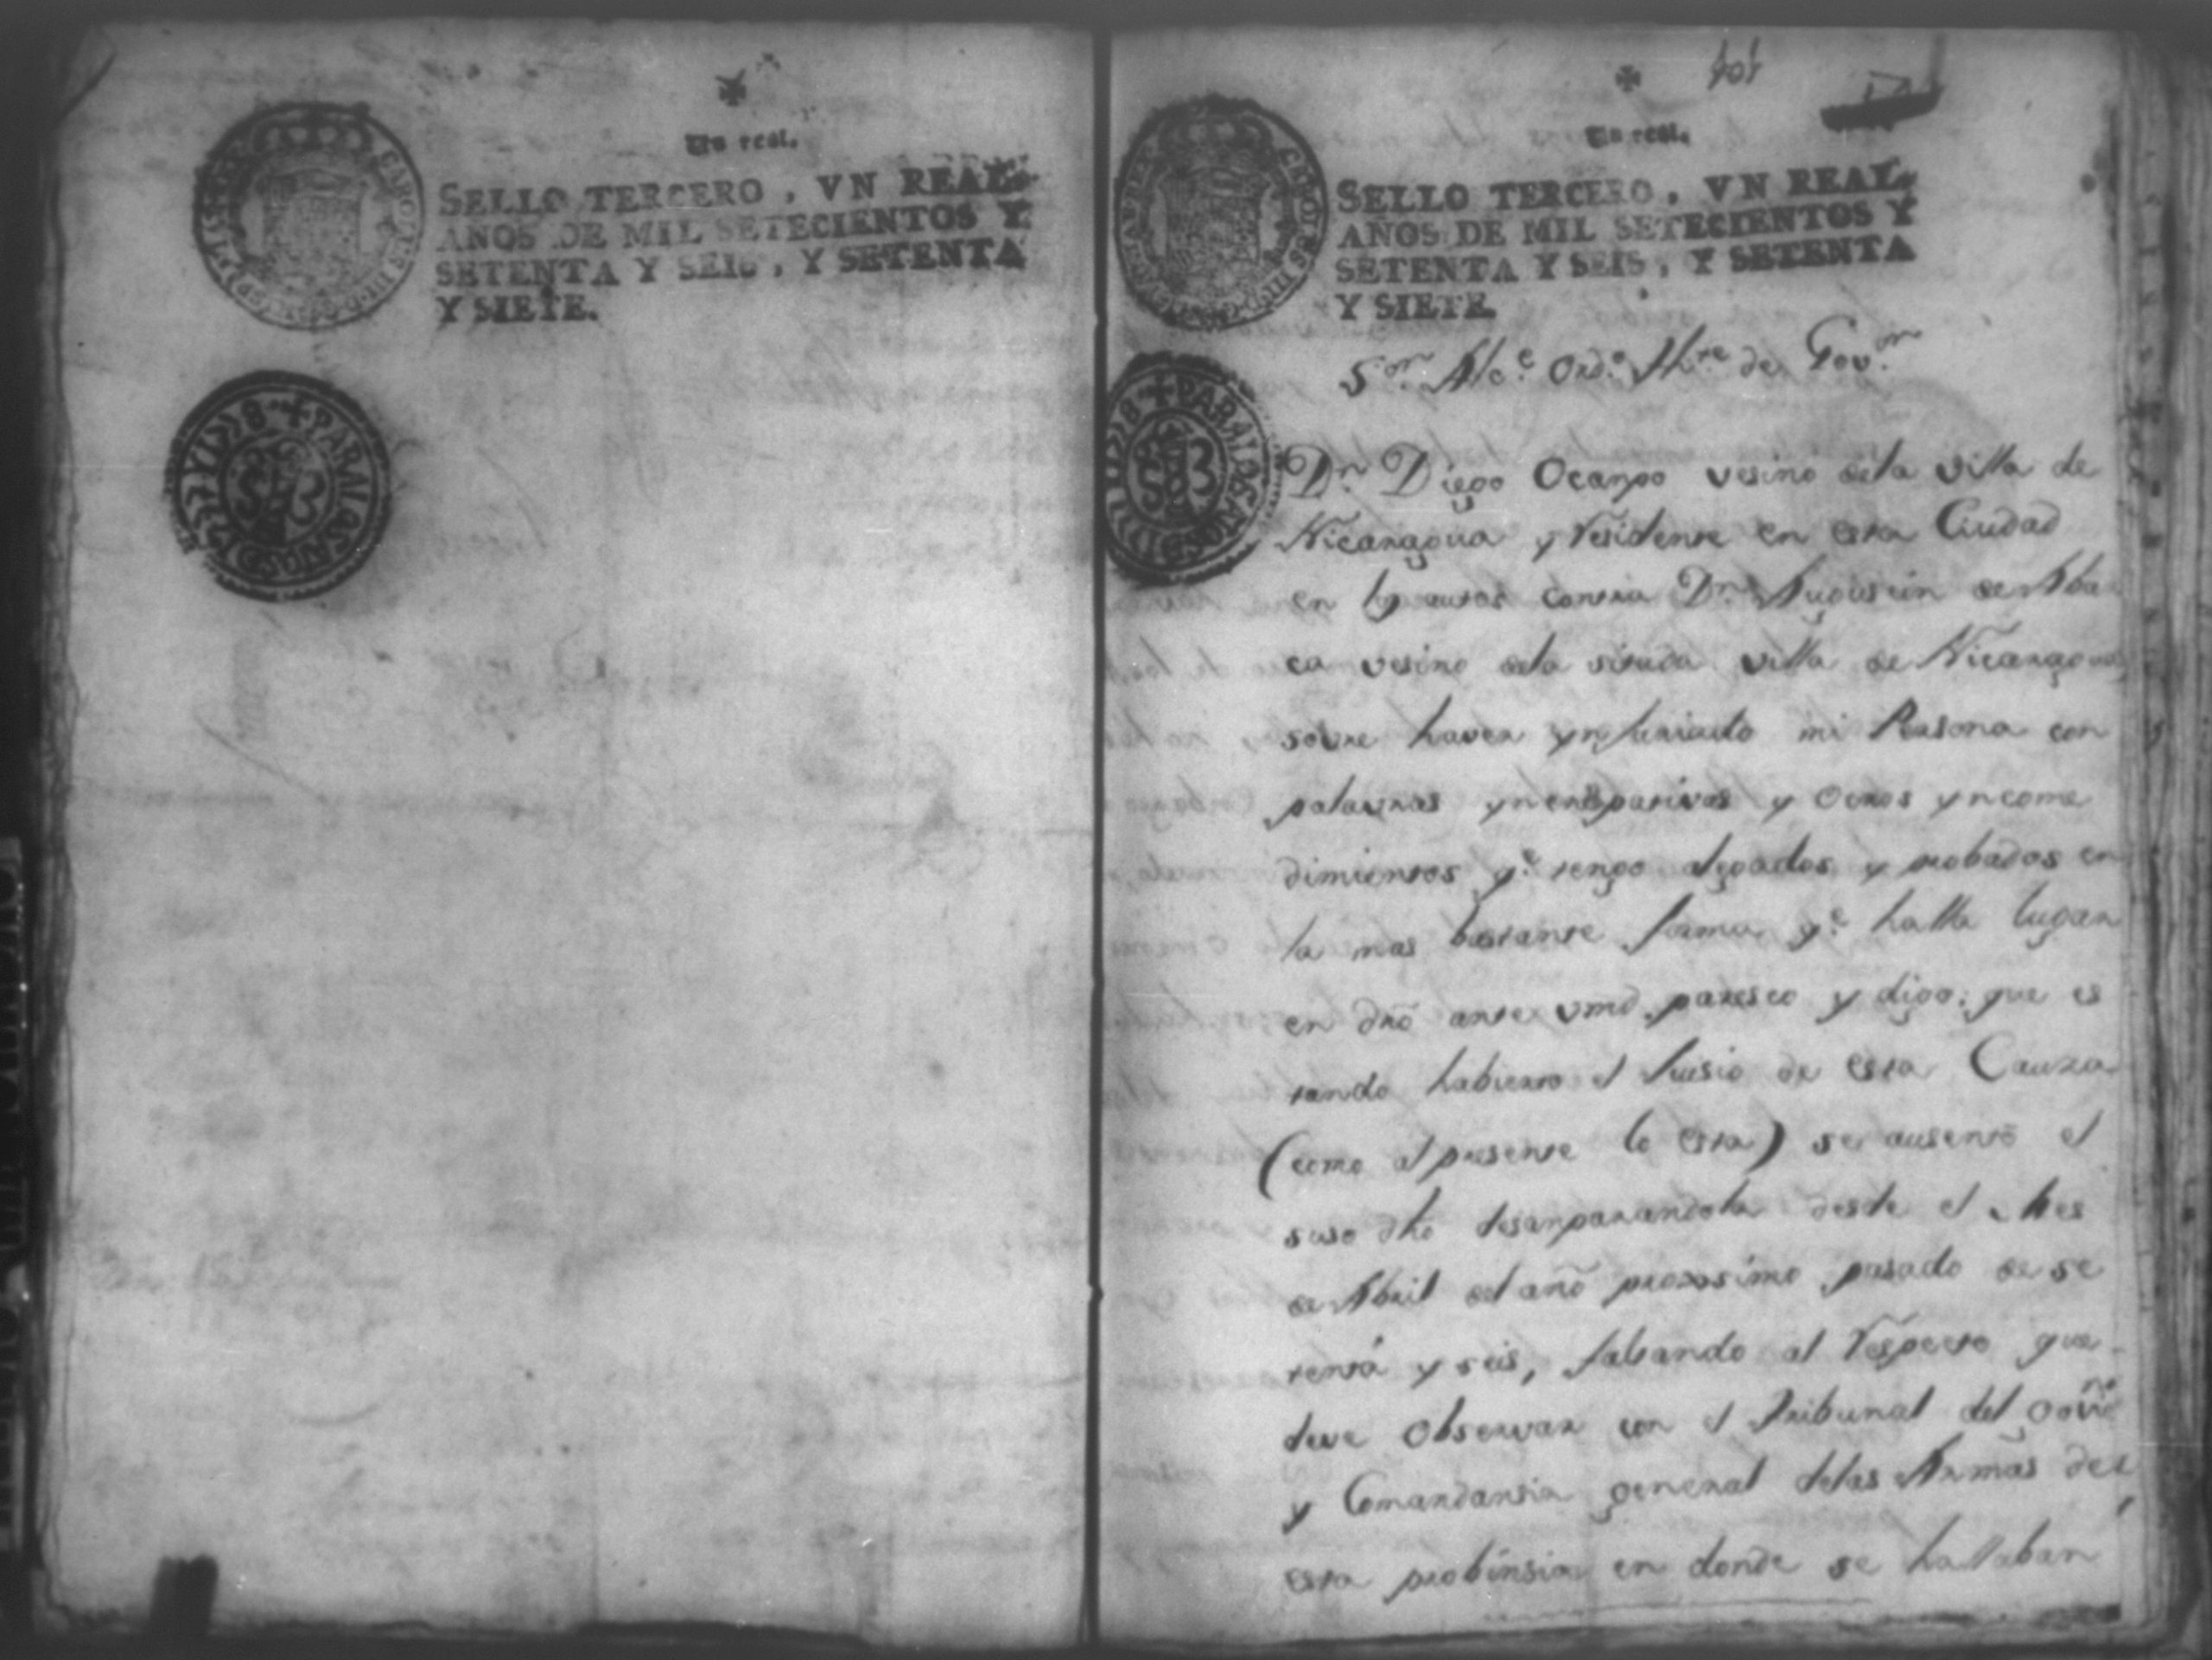 Un real.
SELLO TERCERO, VN REAL
AÑOS DE MIL SETECIENTOS Y
SETENTA Y SEIS, Y SETENTA
Y SIETE.
101
Un real.
SELLO TERCERO, VN REAL
AÑOS DE MIL SETECIENTOS Y
SETENTA Y SEIS, Y SETENTA
Y SIETE.
Sor. Alce. Ordo. Thte de Govor
Dn Diego Ocanpo vesino dela villa de
Nicaragua y residente en esta Ciudad
en los autos contra Dn Augustin de Aba
ca vesino dela sitada villa de Nicaragua
sovre haver ynjuriado mi Persona con
palavras ynenrparivas y otros yncome
dimientos qe. tengo alegados y probados en
la mas bastante forma qe. halla lugar
en dro ante vmd. paresco y digo: que es
tando habierto el Juisio de esta Cauza
(como al presente lo esta) se ausentó el
suso dho desanparandola desde el Mes
de Abril del año proxsimo pasado de se
tenta y seis, faltando al respecto que
deve observar con el Tribunal del Govno
y Comandansia general delas Armas de
esta probinsia en donde se hallaban